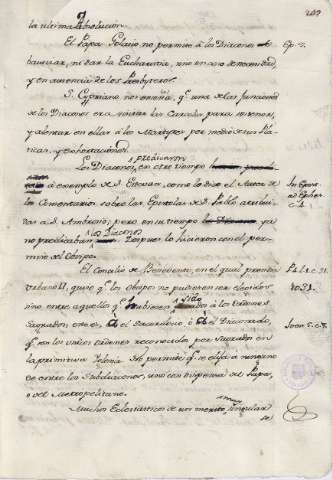 la ultima absolucion.
El Papa Gelasio no permite à los Diaconos
bautizar, ni dar la Eucharistia, sino en caso de necesidad,
y en ausencia de los Presbyteros.
S. Cypriano nos enseña, qᵉ una de las funciones
de los Diaconos era visitar las Carceles para
y alentar en ellas à los Martyres por medio de sus Pla-
ticas, y exhortaciones.
Los Diaconos en otro tiempo predicaron
à exemplo de S. Estevan, como lo dice el Autor de
los Comentarios sobre las Epistolas de S. Pablo atribui-
das à S. Ambrosio; pero en su tiempo ya
no predicaban los Diaconos. Despues lo hicieron con el per-
miso del Obispo.
El Concilio de Benevento, en el qual presidió
Urbano II, quiso qᵉ los Obispos no pudiesen ser elegidos
sino entre aquellos qᵉ hubiesen sido à los Ordenes
Sagrados, esto es, el Sacerdocio, ò el Diaconado,
qᵉ son los unicos Ordenes reconocidos por Sagrados en
la primitiva Iglesia. No permite qᵉ se elija à ninguno
de entre los Subdiaconos, sino con dispensa del Papa,
ò del Metropolitano.
Muchos Eclesiasticos de un merito muy singular